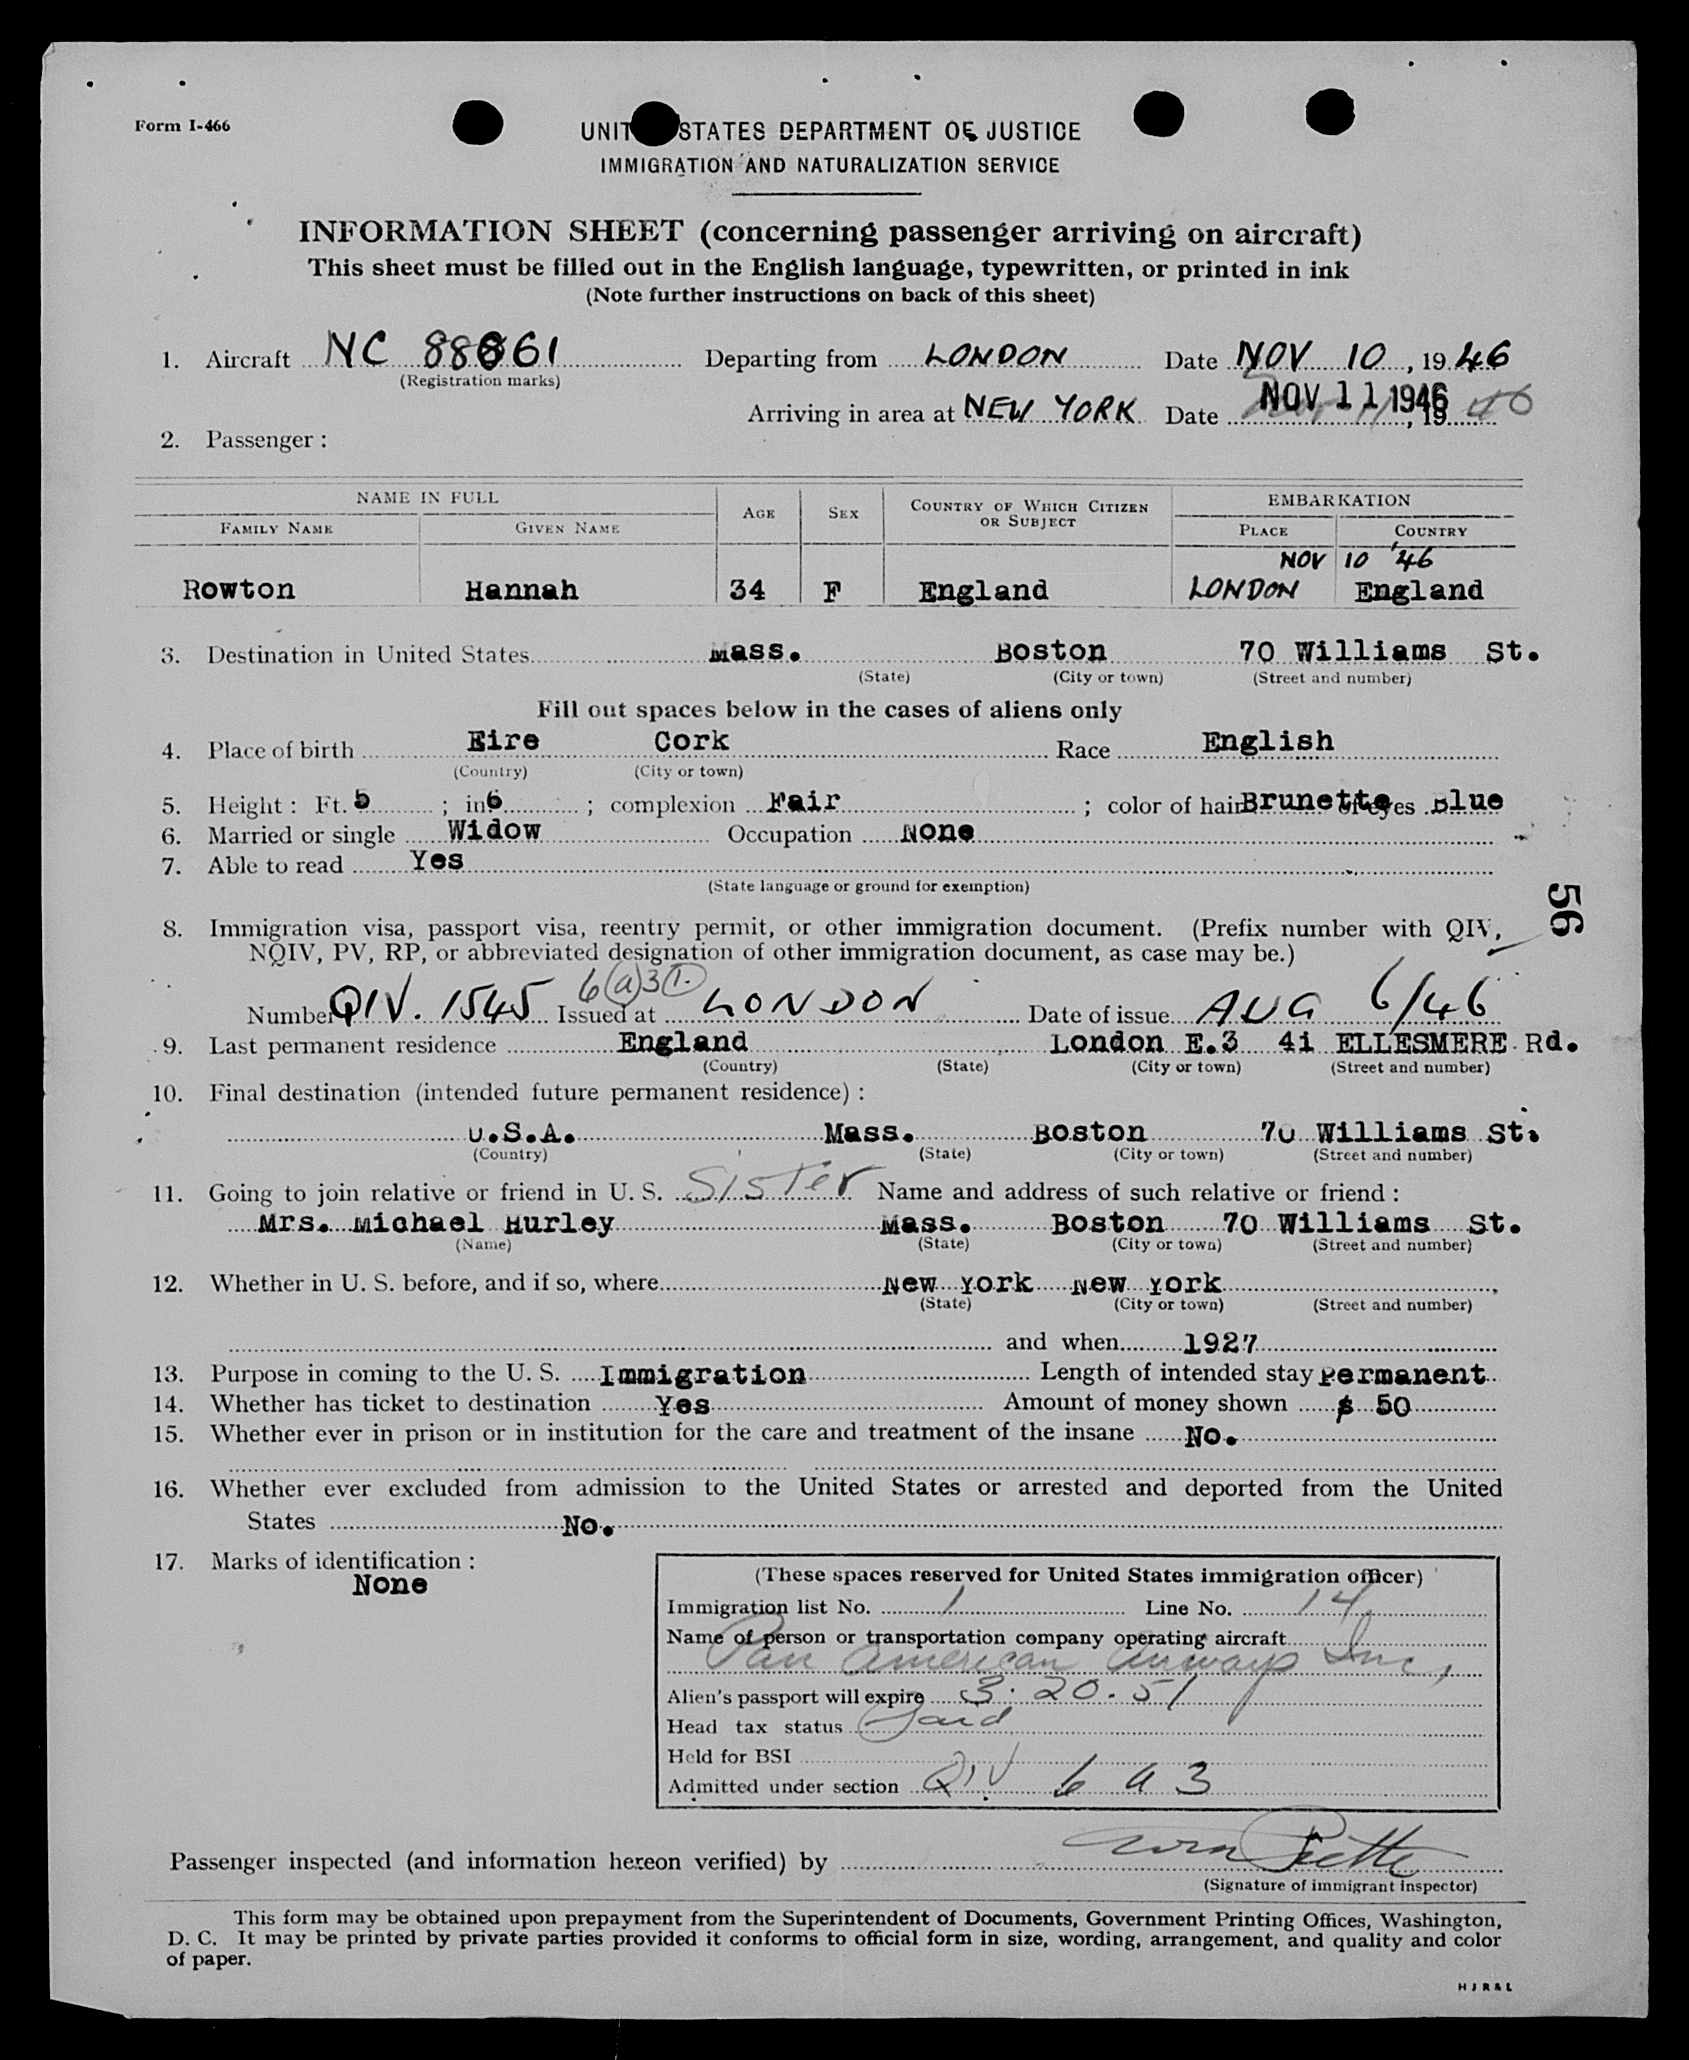 Form I-466
UNITED STATES DEPARTMENT OF JUSTICE
IMMIGRATION AND NATURALIZATION SERVICE
INFORMATION SHEET (concerning passenger arriving on aircraft)
This sheet must be filled out in the English language, typewritten, or printed in ink
(Note further instructions on back of this sheet)
1. Aircraft NC 88861 Departing from LONDON Date NOV 10, 1946
(Registration marks)
Arriving in area at NEW YORK Date NOV 11 1946, 19 46
2. Passenger :
NAME IN FULL AGE SEX COUNTRY OF WHICH CITIZEN OR SUBJECT EMBARKATION
FAMILY NAME GIVEN NAME PLACE COUNTRY
NOV 10 '46
Rowton Hannah 34 F England LONDON England
3. Destination in United States Mass. Boston 70 Williams St.
(State) (City or town) (Street and number)
Fill out spaces below in the cases of aliens only
4. Place of birth Eire Cork Race English
(Country) (City or town)
5. Height : Ft. 5 ; in 6 ; complexion Fair ; color of hair Brunette of eyes Blue
6. Married or single Widow Occupation None
7. Able to read Yes
(State language or ground for exemption)
56
8. Immigration visa, passport visa, reentry permit, or other immigration document. (Prefix number with QIV,
NQIV, PV, RP, or abbreviated designation of other immigration document, as case may be.)
6(a)3(1.)
Number QIV. 1545 Issued at LONDON Date of issue AUG 6/46
9. Last permanent residence England London E.3 41 ELLESMERE Rd.
(Country) (State) (City or town) (Street and number)
10. Final destination (intended future permanent residence) :
U.S.A. Mass. Boston 70 Williams St.
(Country) (State) (City or town) (Street and number)
11. Going to join relative or friend in U. S. Sister Name and address of such relative or friend :
Mrs. Michael Hurley Mass. Boston 70 Williams St.
(Name) (State) (City or town) (Street and number)
12. Whether in U. S. before, and if so, where New York New York
(State) (City or town) (Street and number)
and when 1927
13. Purpose in coming to the U. S. Immigration Length of intended stay Permanent
14. Whether has ticket to destination Yes Amount of money shown $ 50
15. Whether ever in prison or in institution for the care and treatment of the insane No.
16. Whether ever excluded from admission to the United States or arrested and deported from the United
States No.
17. Marks of identification :
None
(These spaces reserved for United States immigration officer)
Immigration list No. 1 Line No. 14
Name of person or transportation company operating aircraft
Pan American Airways Inc,
Alien's passport will expire 3.20.51
Head tax status Paid
Held for BSI
Admitted under section QIV 6 a 3
Passenger inspected (and information hereon verified) by
(Signature of immigrant inspector)
This form may be obtained upon prepayment from the Superintendent of Documents, Government Printing Offices, Washington,
D. C. It may be printed by private parties provided it conforms to official form in size, wording, arrangement, and quality and color
of paper.
H J R & L